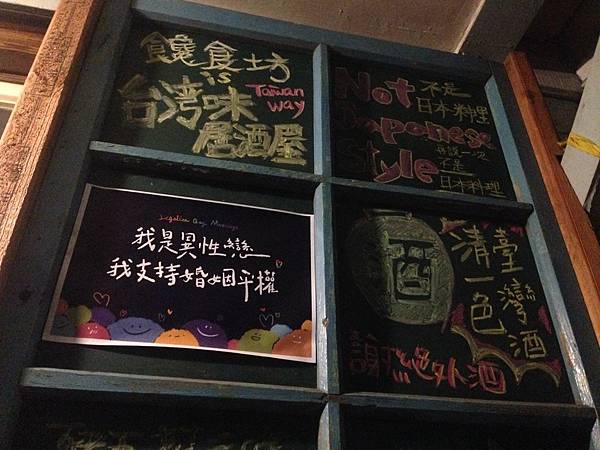 饞食坊
is
台湾味
Taiwan
way
居酒屋
Not 不是
日本料理
Japanese
再說一次
Style 不是
日本料理
Legalize Gay Marriage
我是異性戀
我支持婚姻平權
酒
臺灣酒
清一色
謝絕外酒